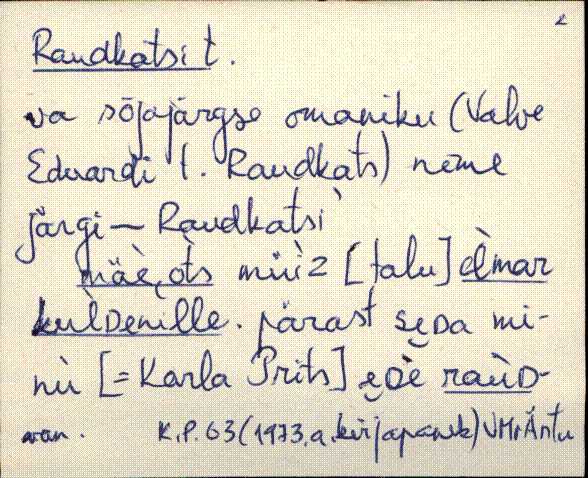 2
Raudkatsi t.
va sõjajärgse omaniku (Valve
Eduardi t. Raudkats) nime
järgi — Raudkatsi
mäè, òts müi̇̀z [talu] èlmar
kùlDenìlle. pärast sẹDa mi-
nù [= Karla Prits] ẹDè raùD-
K.P. 63 (1973. a. kirjapanek) VMr Äntu